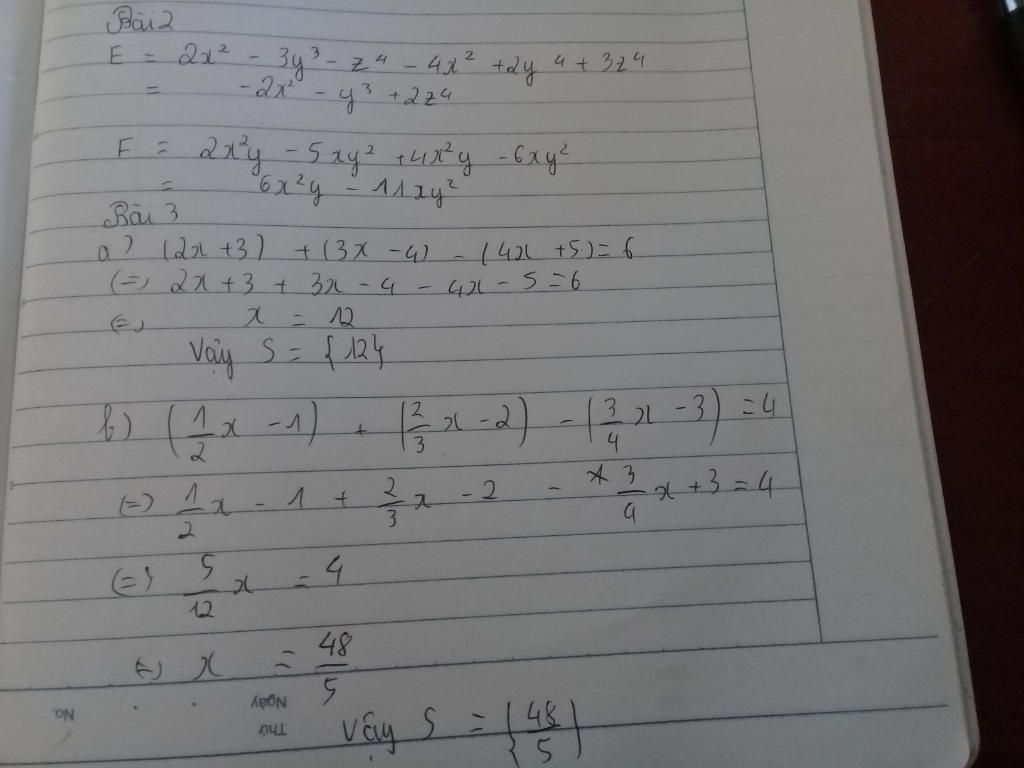 Bài 2
E = 2x² - 3y³ - z⁴ - 4x² + 2y⁴ + 3z⁴
= -2x² - y³ + 2z⁴
F = 2x²y - 5xy² + 4x²y - 6xy²
= 6x²y - 11xy²
Bài 3
a) (2x + 3) + (3x - 4) - (4x + 5) = 6
(=) 2x + 3 + 3x - 4 - 4x - 5 = 6
(=) x = 12
Vậy S = {12}
b) (1/2 x - 1) + (2/3 x - 2) - (3/4 x - 3) = 4
(=) 1/2 x - 1 + 2/3 x - 2 - 3/4 x + 3 = 4
(=) 5/12 x = 4
(=) x = 48/5
Vậy S = {48/5}
No.
Ngày
Thứ